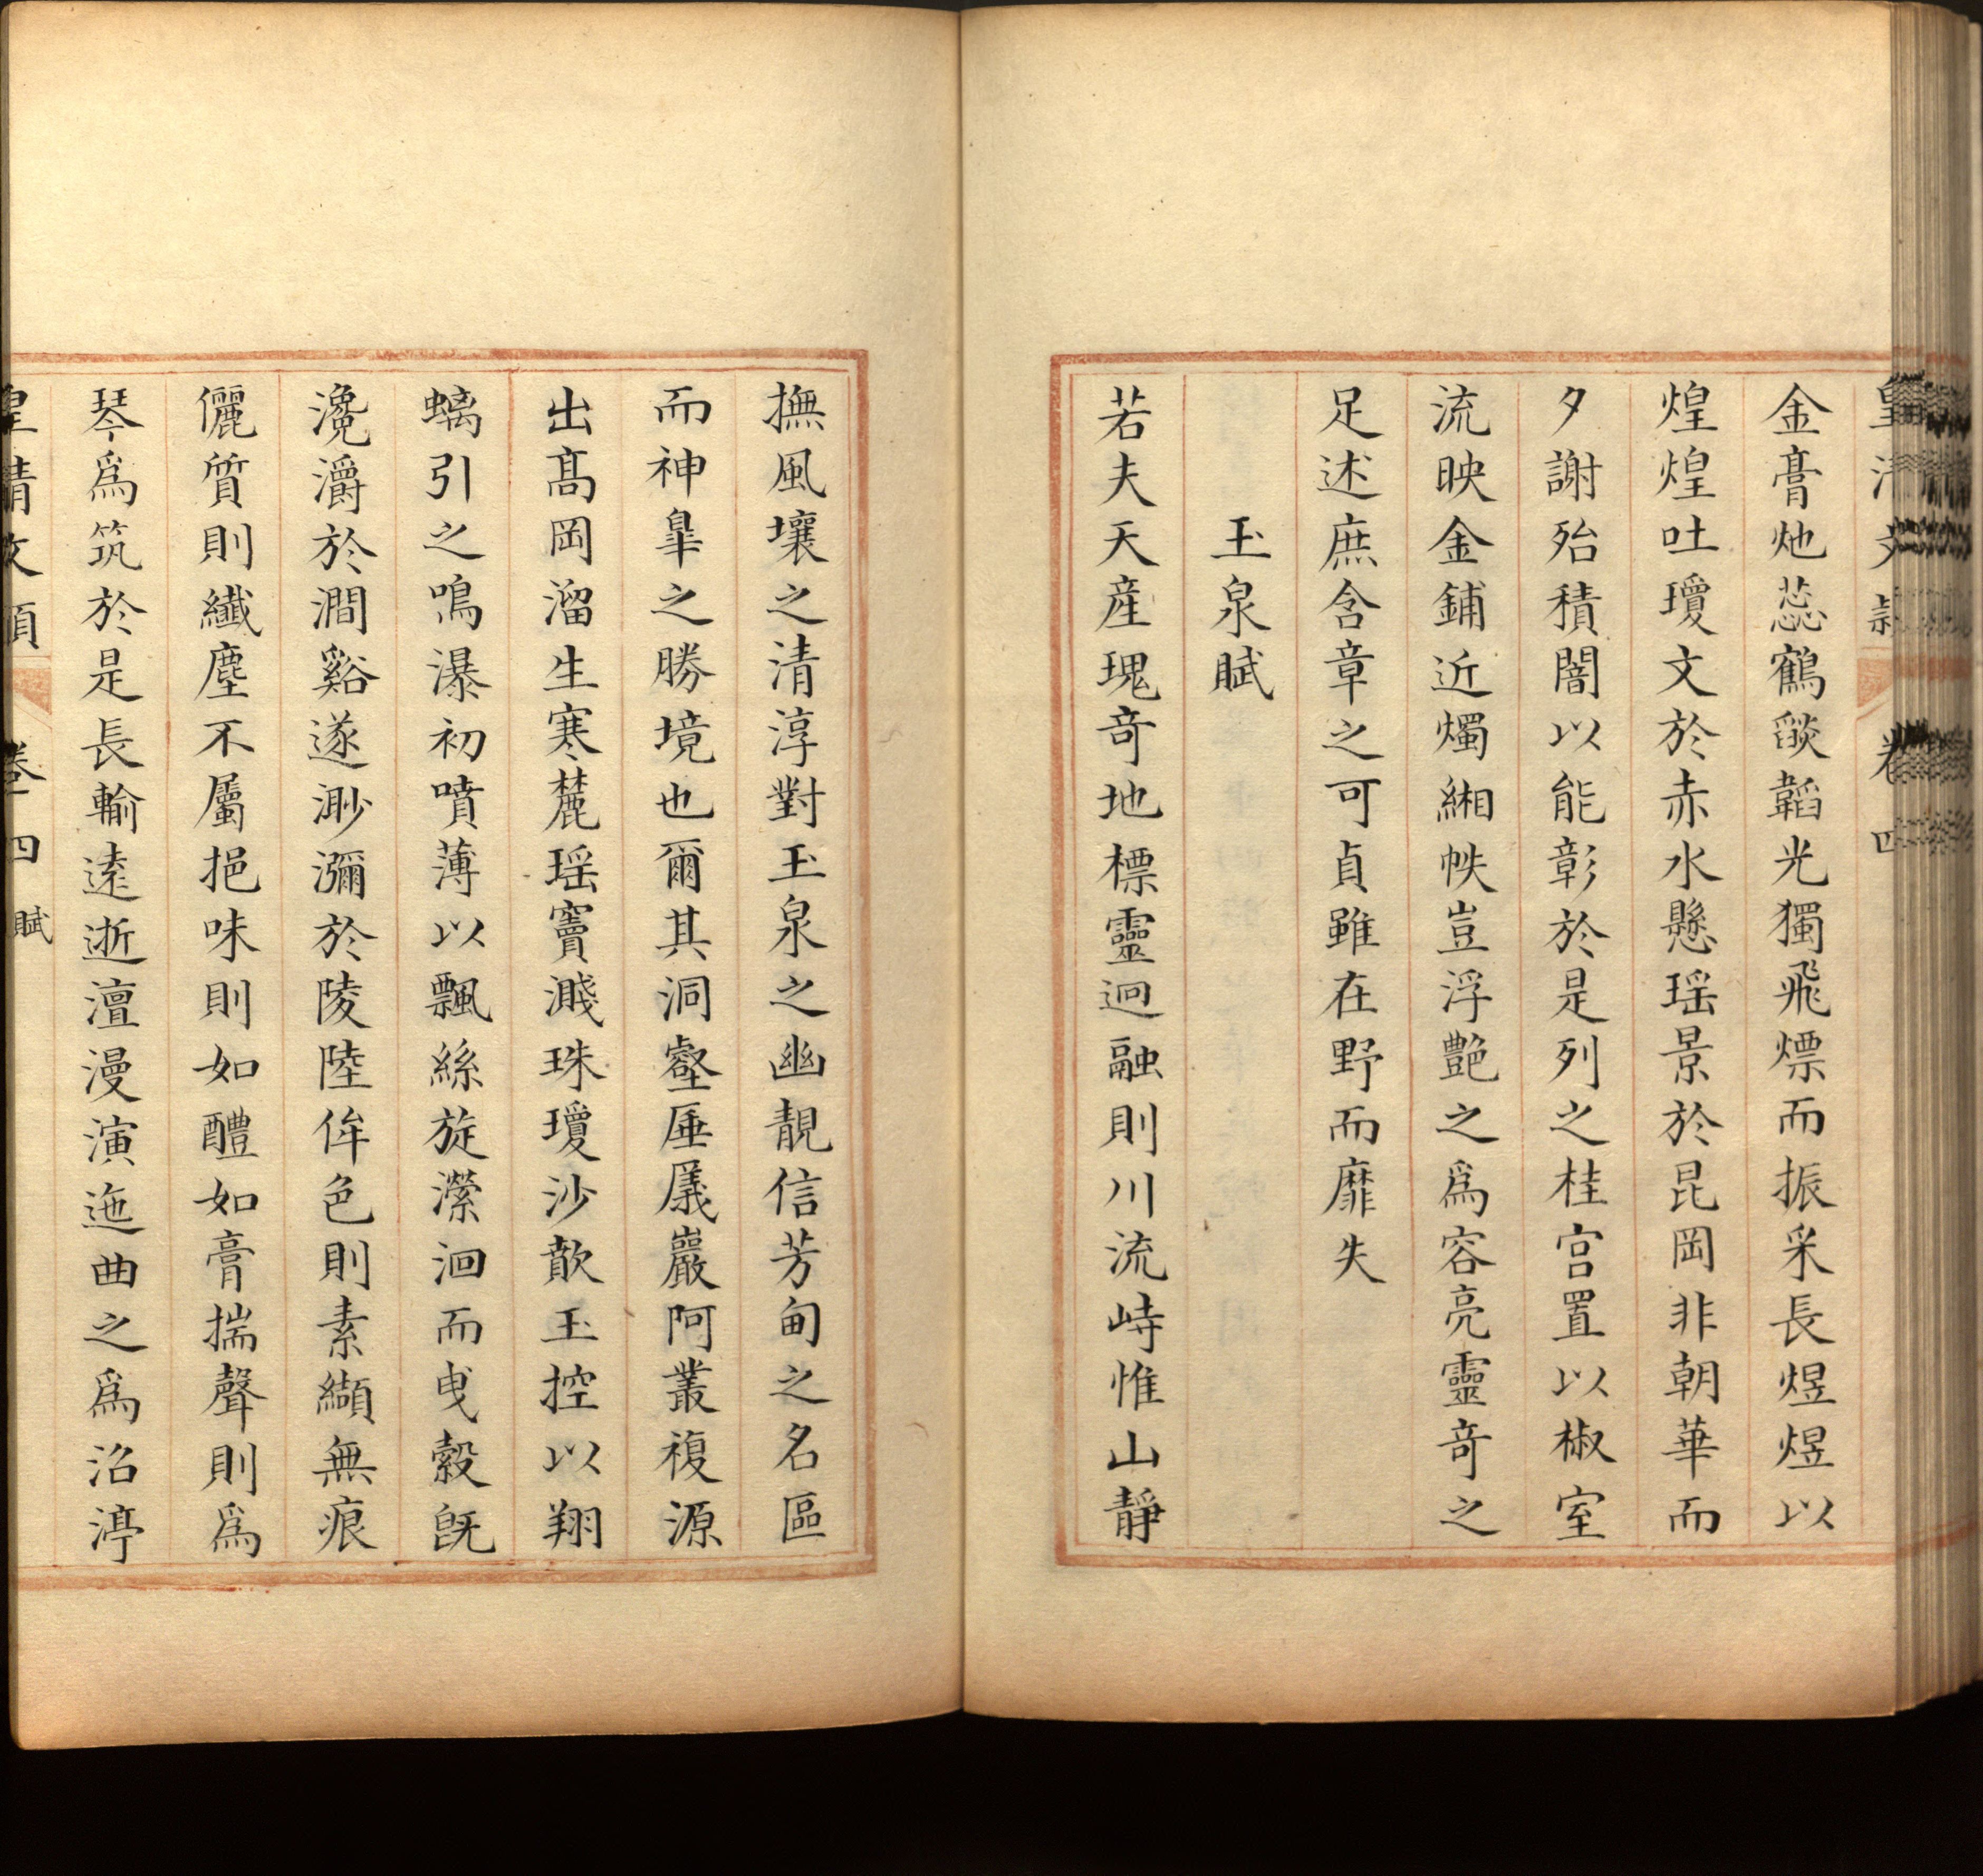 皇清文穎 卷四
金膏灺蕊鶴燄韜光獨飛熛而振采長煜煜以
煌煌吐瓊文於赤水懸瑶景於昆岡非朝華而
夕謝殆積闇以能彰於是列之桂宫置以椒室
流映金鋪近燭緗帙豈浮艷之為容亮靈竒之
足述庶含章之可貞雖在野而靡失
玉泉賦
若夫天産瑰竒地標靈迥融則川流峙惟山靜
撫風壤之清淳對玉泉之幽靚信芳甸之名區
而神臯之勝境也爾其洞壑厜㕒巖阿叢複源
出髙岡溜生寒麓瑶竇濺珠瓊沙歕玉控以翔
螭引之鳴瀑初噴薄以飄絲旋瀠洄而曵縠旣
瀺灂於澗谿遂渺瀰於陵陸侔色則素纈無痕
儷質則纎塵不屬挹味則如醴如膏揣聲則爲
琴爲筑於是長輸逺逝澶漫演迤曲之爲沼渟
皇清文穎 卷四 賦